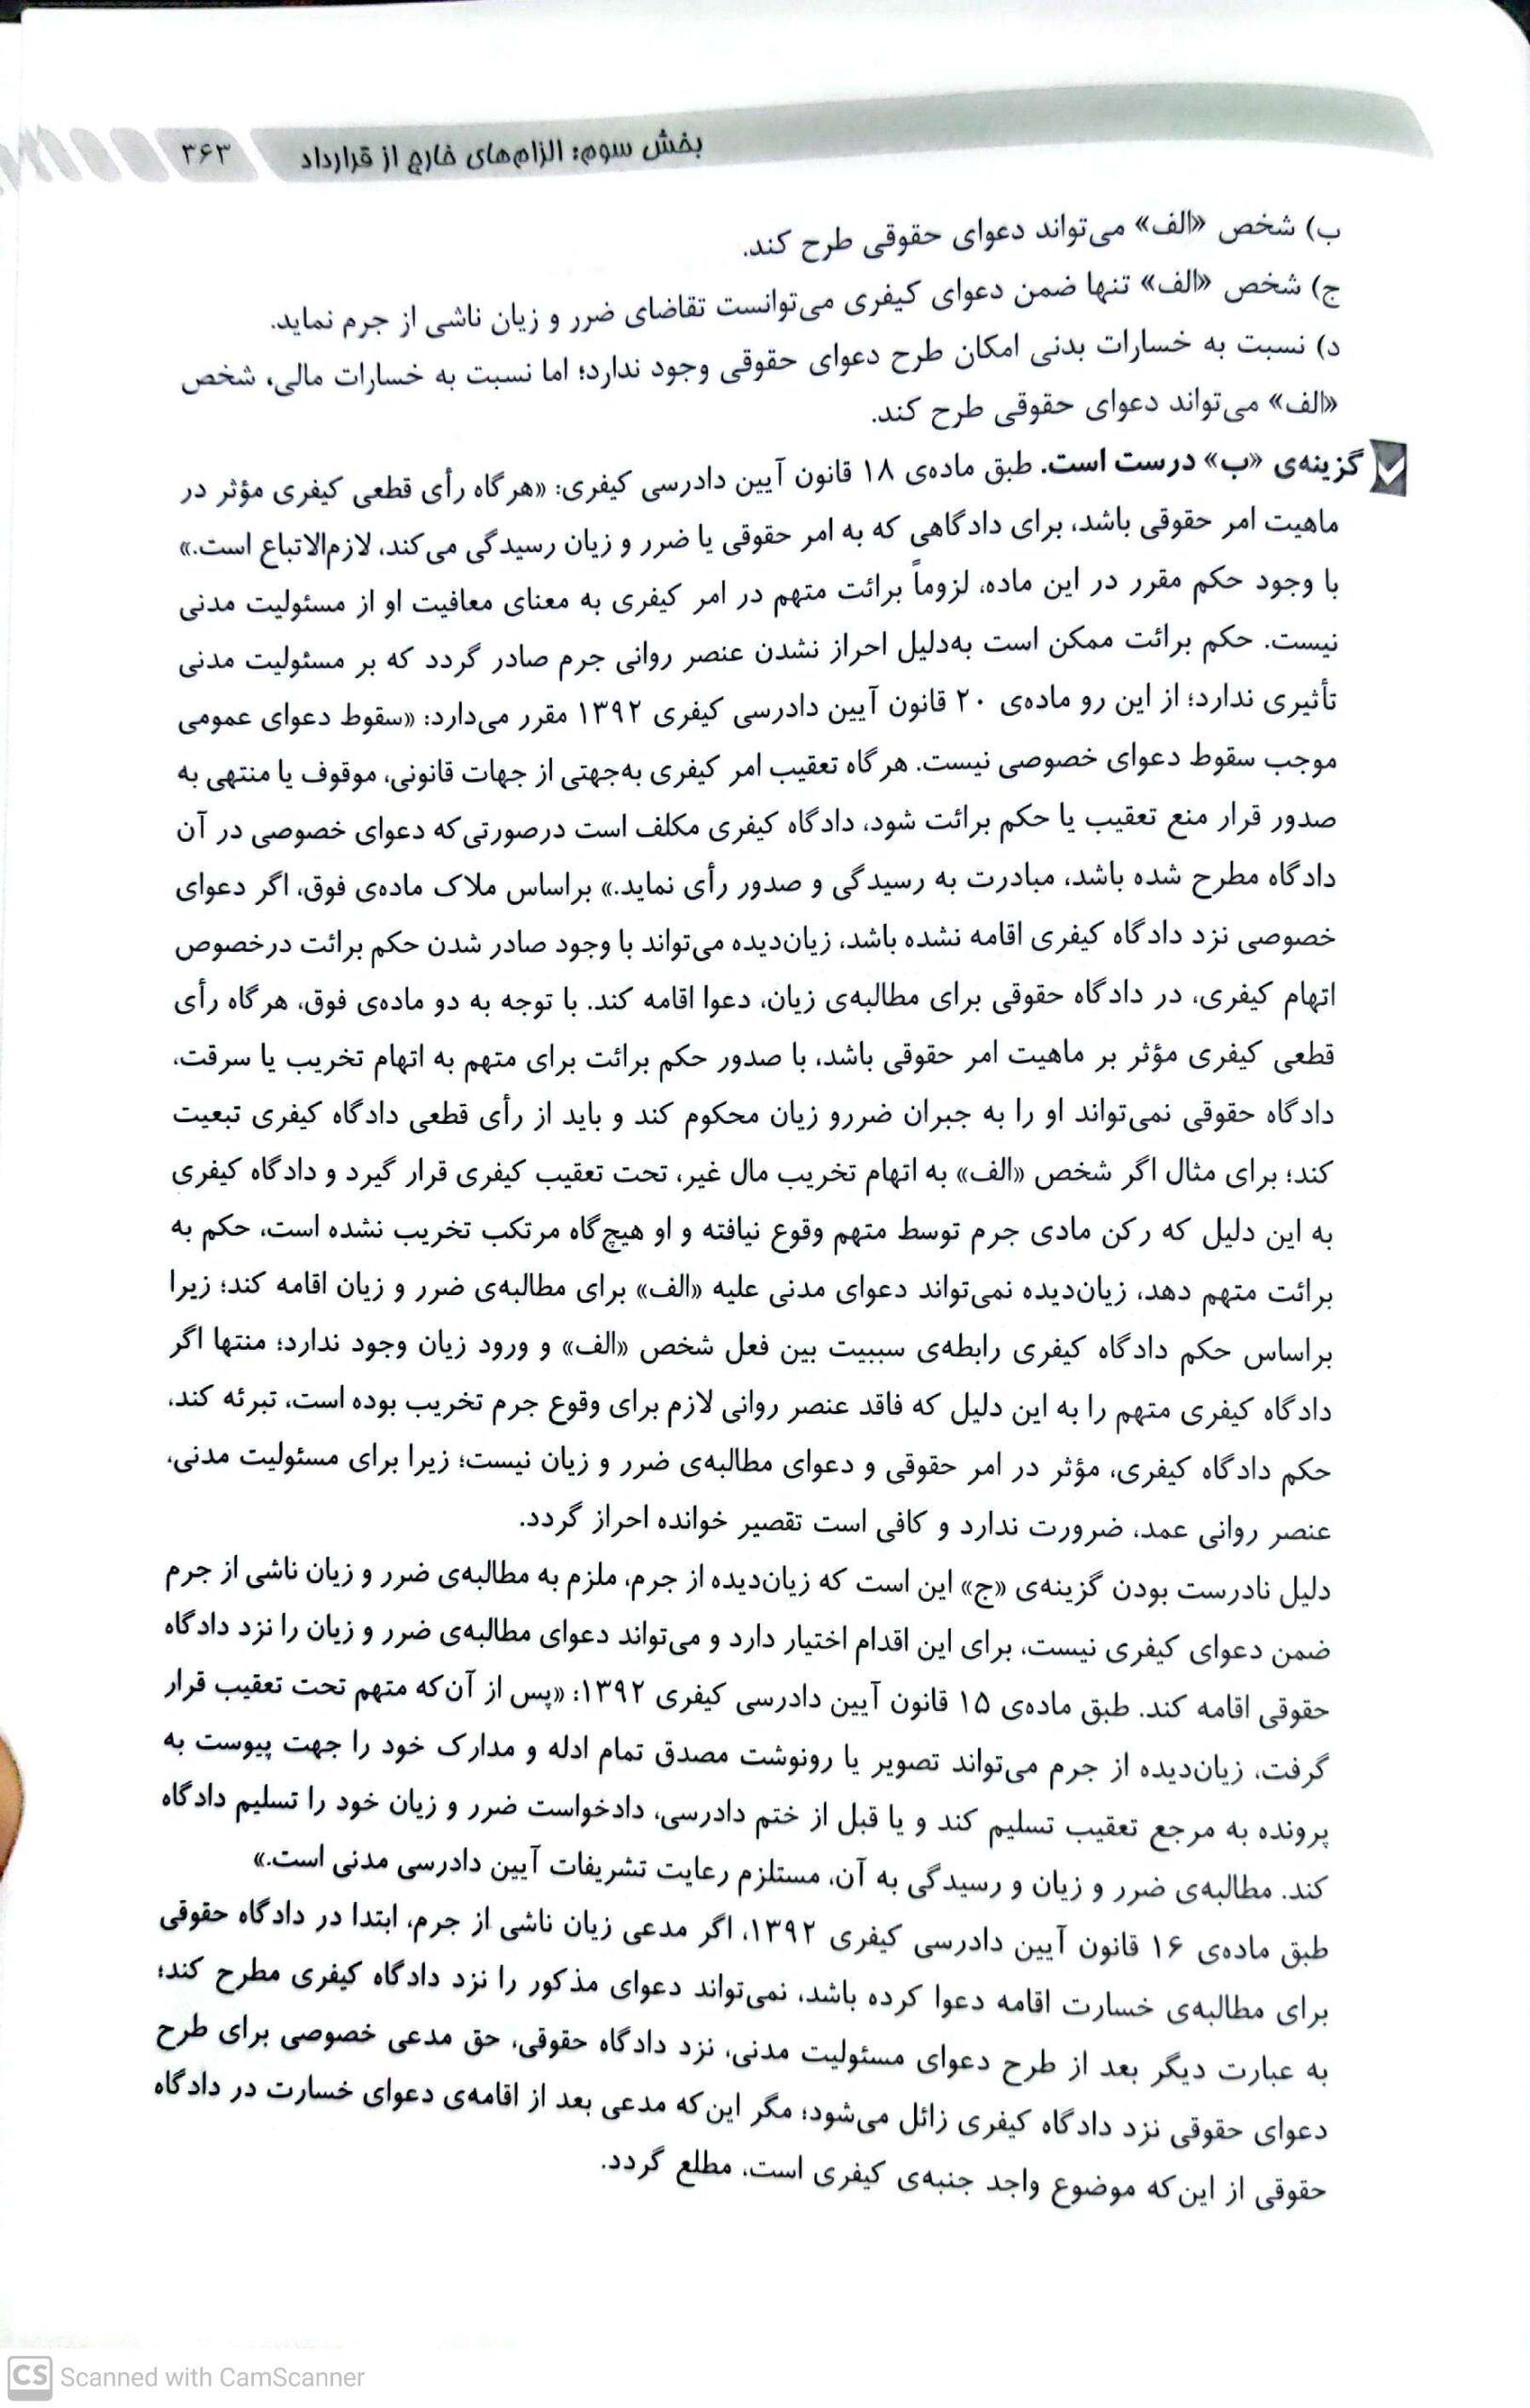 بخش سوم: الزام‌های خارج از قرارداد ۳۶۳
ب) شخص «الف» می‌تواند دعوای حقوقی طرح کند.
ج) شخص «الف» تنها ضمن دعوای کیفری می‌توانست تقاضای ضرر و زیان ناشی از جرم نماید.
د) نسبت به خسارات بدنی امکان طرح دعوای حقوقی وجود ندارد؛ اما نسبت به خسارات مالی، شخص
«الف» می‌تواند دعوای حقوقی طرح کند.
گزینه‌ی «ب» درست است. طبق ماده‌ی ۱۸ قانون آیین دادرسی کیفری: «هرگاه رأی قطعی کیفری مؤثر در
ماهیت امر حقوقی باشد، برای دادگاهی که به امر حقوقی یا ضرر و زیان رسیدگی می‌کند، لازم‌الاتباع است.»
با وجود حکم مقرر در این ماده، لزوماً برائت متهم در امر کیفری به معنای معافیت او از مسئولیت مدنی
نیست. حکم برائت ممکن است به‌دلیل احراز نشدن عنصر روانی جرم صادر گردد که بر مسئولیت مدنی
تأثیری ندارد؛ از این رو ماده‌ی ۲۰ قانون آیین دادرسی کیفری ۱۳۹۲ مقرر می‌دارد: «سقوط دعوای عمومی
موجب سقوط دعوای خصوصی نیست. هرگاه تعقیب امر کیفری به‌جهتی از جهات قانونی، موقوف یا منتهی به
صدور قرار منع تعقیب یا حکم برائت شود، دادگاه کیفری مکلف است درصورتی‌که دعوای خصوصی در آن
دادگاه مطرح شده باشد، مبادرت به رسیدگی و صدور رأی نماید.» براساس ملاک ماده‌ی فوق، اگر دعوای
خصوصی نزد دادگاه کیفری اقامه نشده باشد، زیان‌دیده می‌تواند با وجود صادر شدن حکم برائت درخصوص
اتهام کیفری، در دادگاه حقوقی برای مطالبه‌ی زیان، دعوا اقامه کند. با توجه به دو ماده‌ی فوق، هرگاه رأی
قطعی کیفری مؤثر بر ماهیت امر حقوقی باشد، با صدور حکم برائت برای متهم به اتهام تخریب یا سرقت،
دادگاه حقوقی نمی‌تواند او را به جبران ضررو زیان محکوم کند و باید از رأی قطعی دادگاه کیفری تبعیت
کند؛ برای مثال اگر شخص «الف» به اتهام تخریب مال غیر، تحت تعقیب کیفری قرار گیرد و دادگاه کیفری
به این دلیل که رکن مادی جرم توسط متهم وقوع نیافته و او هیچ‌گاه مرتکب تخریب نشده است، حکم به
برائت متهم دهد، زیان‌دیده نمی‌تواند دعوای مدنی علیه «الف» برای مطالبه‌ی ضرر و زیان اقامه کند؛ زیرا
براساس حکم دادگاه کیفری رابطه‌ی سببیت بین فعل شخص «الف» و ورود زیان وجود ندارد؛ منتها اگر
دادگاه کیفری متهم را به این دلیل که فاقد عنصر روانی لازم برای وقوع جرم تخریب بوده است، تبرئه کند،
حکم دادگاه کیفری، مؤثر در امر حقوقی و دعوای مطالبه‌ی ضرر و زیان نیست؛ زیرا برای مسئولیت مدنی،
عنصر روانی عمد، ضرورت ندارد و کافی است تقصیر خوانده احراز گردد.
دلیل نادرست بودن گزینه‌ی «ج» این است که زیان‌دیده از جرم، ملزم به مطالبه‌ی ضرر و زیان ناشی از جرم
ضمن دعوای کیفری نیست، برای این اقدام اختیار دارد و می‌تواند دعوای مطالبه‌ی ضرر و زیان را نزد دادگاه
حقوقی اقامه کند. طبق ماده‌ی ۱۵ قانون آیین دادرسی کیفری ۱۳۹۲: «پس از آن‌که متهم تحت تعقیب قرار
گرفت، زیان‌دیده از جرم می‌تواند تصویر یا رونوشت مصدق تمام ادله و مدارک خود را جهت پیوست به
پرونده به مرجع تعقیب تسلیم کند و یا قبل از ختم دادرسی، دادخواست ضرر و زیان خود را تسلیم دادگاه
کند. مطالبه‌ی ضرر و زیان و رسیدگی به آن، مستلزم رعایت تشریفات آیین دادرسی مدنی است.»
طبق ماده‌ی ۱۶ قانون آیین دادرسی کیفری ۱۳۹۲، اگر مدعی زیان ناشی از جرم، ابتدا در دادگاه حقوقی
برای مطالبه‌ی خسارت اقامه دعوا کرده باشد، نمی‌تواند دعوای مذکور را نزد دادگاه کیفری مطرح کند؛
به عبارت دیگر بعد از طرح دعوای مسئولیت مدنی، نزد دادگاه حقوقی، حق مدعی خصوصی برای طرح
دعوای حقوقی نزد دادگاه کیفری زائل می‌شود؛ مگر این‌که مدعی بعد از اقامه‌ی دعوای خسارت در دادگاه
حقوقی از این‌که موضوع واجد جنبه‌ی کیفری است، مطلع گردد.
CS Scanned with CamScanner